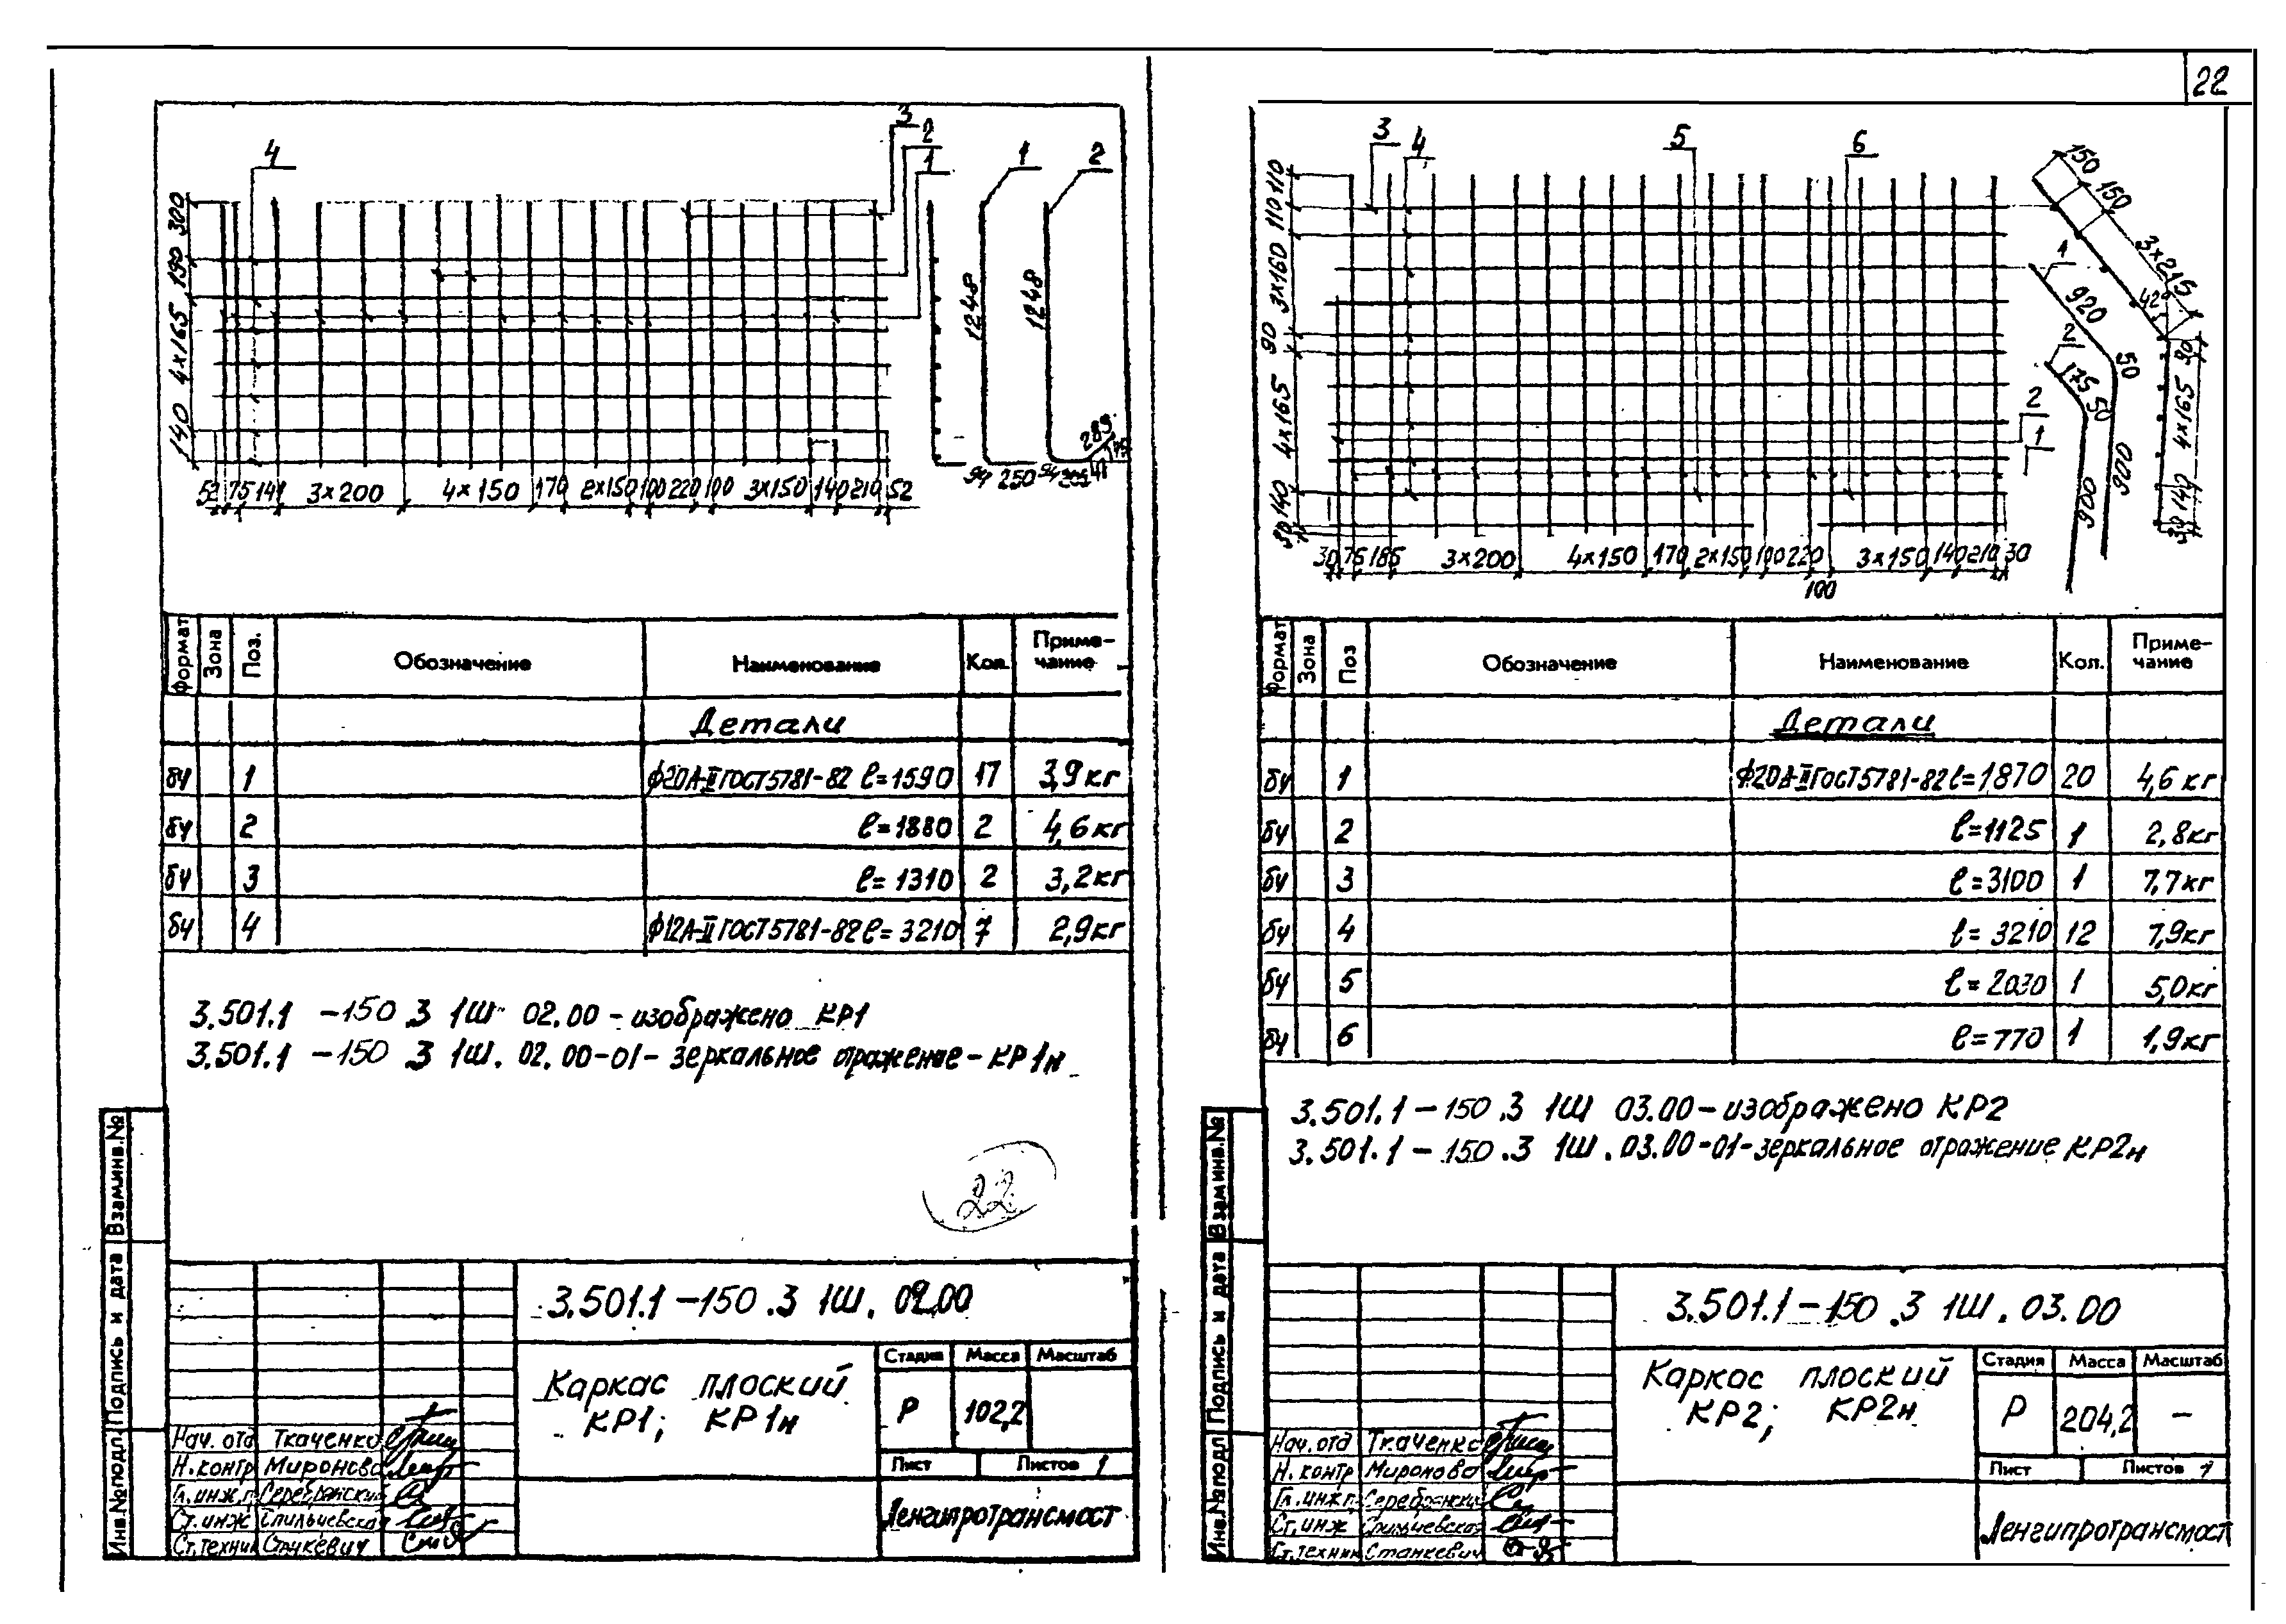 22
3
2
1
4
1
2
300
190
4×165
140
1248
1248
94 250
289
52 75 141 3×200 4×150 170 2×150 100 220 100 3×150 140 210 52
Формат
Зона
Поз.
Обозначение
Наименование
Кол.
Приме-
чание
Детали
бч 1 ф20А-II ГОСТ5781-82 ℓ=1590 17 3,9кг
бч 2 ℓ=1880 2 4,6кг
бч 3 ℓ=1310 2 3,2кг
бч 4 ф12А-II ГОСТ5781-82 ℓ=3210 7 2,9кг
3.501.1 -150.3 1Ш 02.00 - изображено КР1
3.501.1 -150.3 1Ш. 02.00-01- зеркальное отражение - КР1н
22
Взам.инв.№
Подпись и дата
Инв.№подл.
3.501.1-150.3 1Ш. 02.00
Каркас плоский
КР1; КР1н
Стадия Масса Масштаб
Р 102,2
Лист Листов 1
Ленгипротрансмост
Нач. отд Ткаченко
Н.контр Миронова
Гл.инж.п. Серебрянский
Ст.инж Спильчевская
Ст.техник Станкевич
3
4
5
6
110
110
3×160
90
4×165
140
30
2
1
150
150
3×215
42°
1
920
50
2
175
50
900
900
90
4×165
140
30
30 75 185 3×200 4×150 170 2×150 100 220 3×150 140 210 30
100
Формат
Зона
Поз
Обозначение
Наименование
Кол.
Приме-
чание
Детали
бч 1 ф20А-II ГОСТ5781-82 ℓ=1870 20 4,6кг
бч 2 ℓ=1125 1 2,8кг
бч 3 ℓ=3100 1 7,7кг
бч 4 ℓ=3210 12 7,9кг
бч 5 ℓ=2030 1 5,0кг
бч 6 ℓ=770 1 1,9кг
3.501.1-150.3 1Ш 03.00-изображено КР2
3.501.1-150.3 1Ш.03.00-01-зеркальное отражение КР2н
Взам.инв.№
Подпись и дата
Инв.№подл
3.501.1-150.3 1Ш.03.00
Каркас плоский
КР2; КР2н
Стадия Масса Масштаб
Р 204,2 –
Лист Листов 1
Ленгипротрансмост
Нач.отд Ткаченко
Н.контр Миронова
Гл.инж.п. Серебрянский
Ст.инж Спильчевская
Ст.техник Станкевич